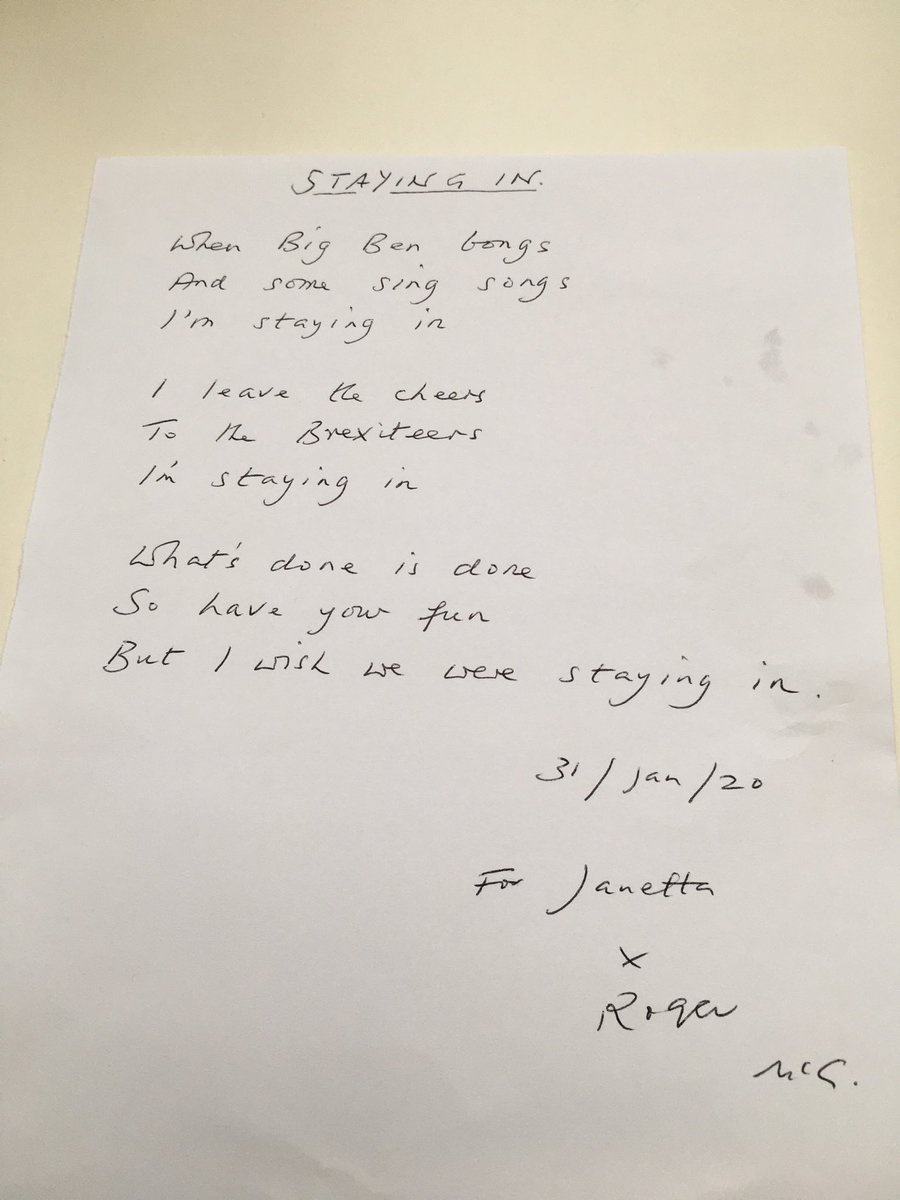 STAYING IN.
When Big Ben bongs
And some sing songs
I'm staying in
I leave the cheers
To the Brexiteers
I'm staying in
What's done is done
So have your fun
But I wish we were staying in.
31/Jan/20
For Janetta
x
Roger
McG.